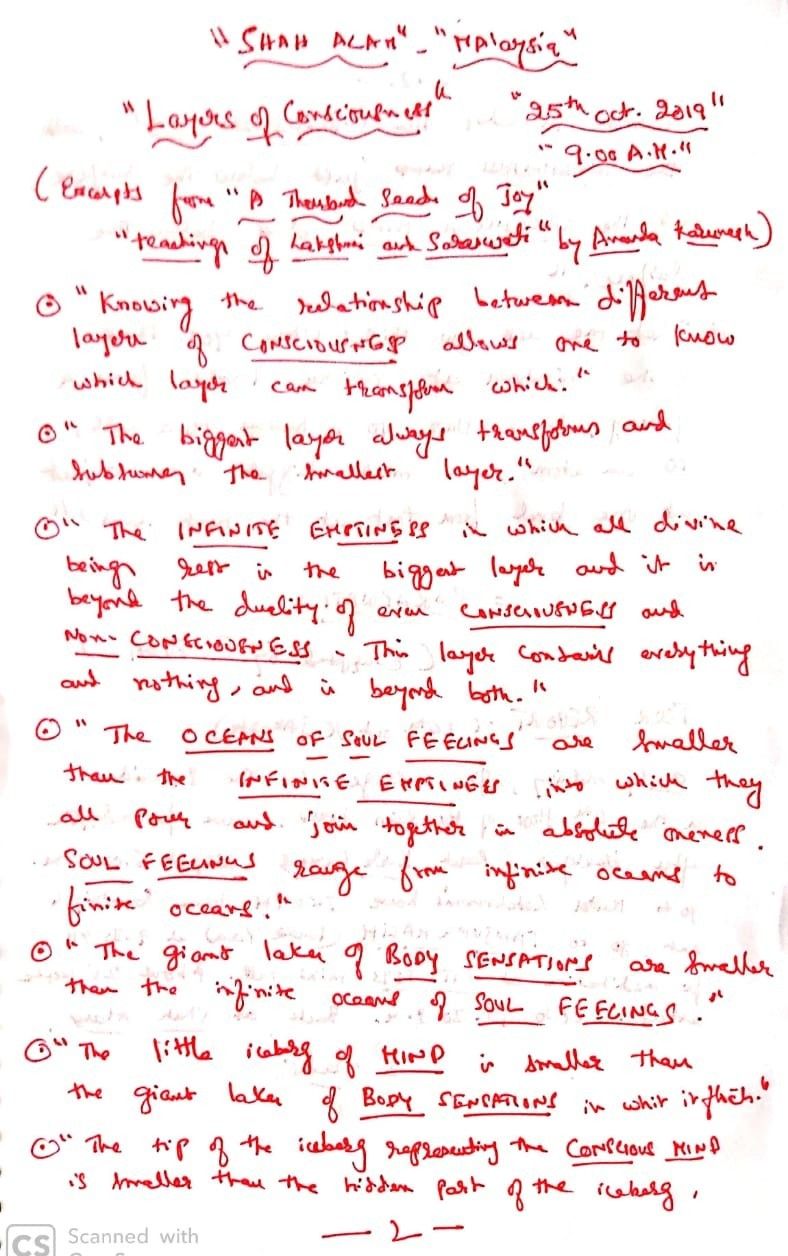 "SHAH ALAM" - "MALaysia"
"Layers of Consciousness" "25th oct. 2019"
"9.00 A.M."
(Excerpts from "A Thousand Seeds of Joy"
"teachings of Lakshmi and Saraswati" by Ananda Karunesh)
"Knowing the relationship between different
layers of CONSCIOUSNESS allows one to know
which layer can transform which."
"The biggest layer always transforms and
subsumes the smallest layer."
"The INFINITE EMPTINESS in which all divine
beings rest is the biggest layer and it is
beyond the duality of even CONSCIOUSNESS and
Non-CONSCIOUSNESS. This layer contains everything
and nothing, and is beyond both."
"The OCEANS OF SOUL FEELINGS are smaller
than the INFINITE EMPTINESS into which they
all pour and join together in absolute oneness.
SOUL FEELINGS range from infinite oceans to
finite oceans."
"The giant lakes of BODY SENSATIONS are smaller
than the infinite oceans of SOUL FEELINGS."
"The little iceberg of MIND is smaller than
the giant lakes of BODY SENSATIONS in
"The tip of the iceberg representing the CONSCIOUS MIND
is smaller than the hidden part of the iceberg,
- 2 -
CS Scanned with